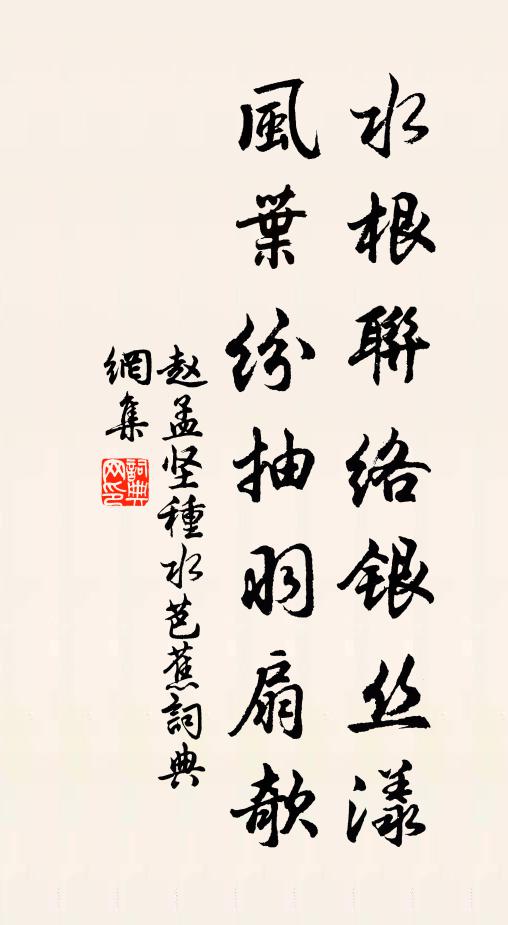 水根聯络銀丝漾
風葉紛抽羽扇欹
赵孟坚種水芭蕉詞典
網集
詞典
网印